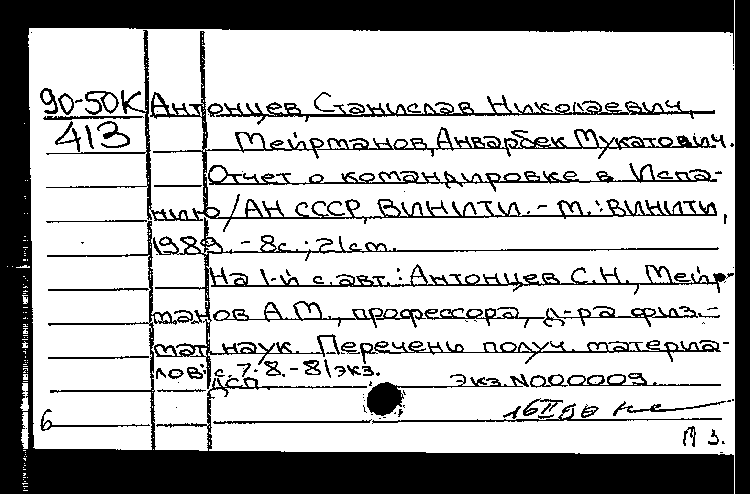 90-50К Антонцев, Станислав Николаевич,
413 Мейрманов, Анварбек Мукатович.
Отчет о командировке в Испа-
нию / АН СССР, ВИНИТИ. - М.: ВИНИТИ,
1989. - 8с.; 21см.
На 1-й с. авт.: Антонцев С.Н., Мейр-
манов А.М., профессора, д-ра физ.-
мат. наук. Перечень получ. материа-
лов: с. 7-8. - 81 экз.
ДСП. Экз. N000009.
16 II 90
6
П 3.